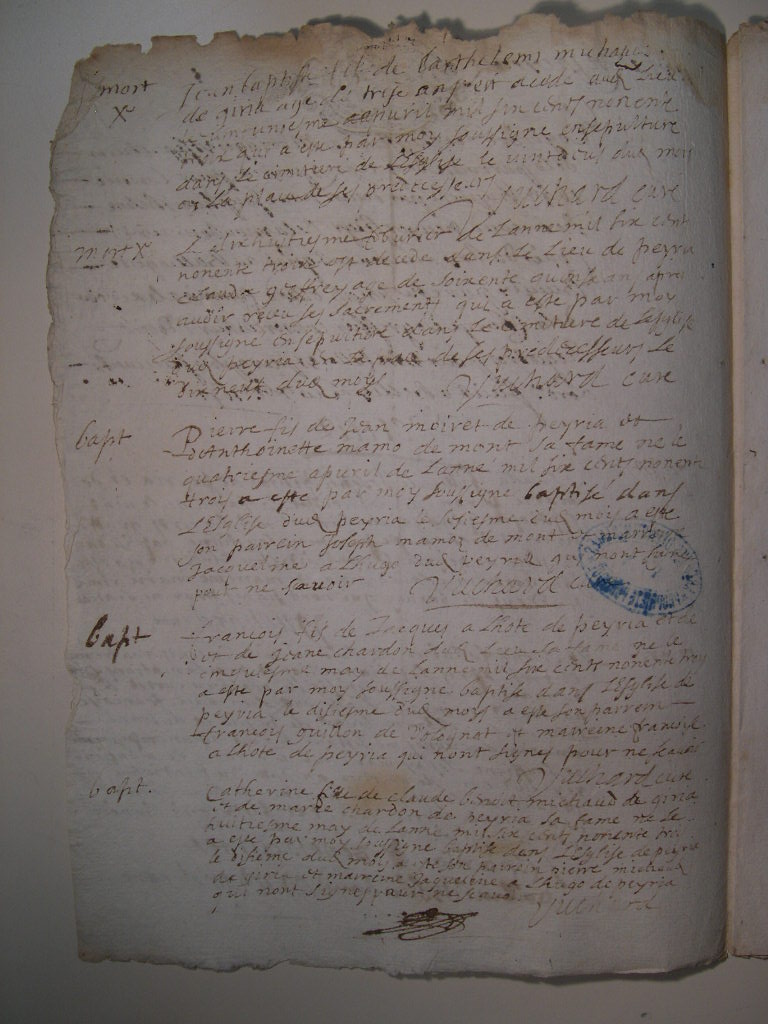 mort
Jean baptiste fils de Barthelemi michaut
de giria age de trese ans est decede aud lieu
apvril mil six cents nonente
a este par moy soussigne ensepulture
dans le cimitiere de L'Esglise le dud moy
a la place de ses predecesseurs Vuchard cure
mort
Le febvrier de Lanne mil six cent
nonente trois est decede dans le Lieu de peyria
claude gofrey age de soixente quinse ans apres
avoir receu ses sacrements qui a este par moy
soussigne ensepulture dans le cimitiere de Lesglise
dud peyria de ses predecesseurs le
dixneuf dud moys Vuchard cure
bapt
Pierre fis de Jean moiret de peyria et
d'Anthoinette mamo de mont sa fame ne le
quatriesme apuril de Lanne mil six cents nonente
troys a este par moy soussigne baptisé dans
L'Esglise dud peyria le sisiesme dud moys a este
son pairein Joseph mamoz de mont et
Jacqueline a Lhugo dud peyria qui nont signes
pour ne savoir Vuchard cure
bapt
francois fis de Jacques a Lhote de peyria et de
et de Jeane chardon dud Lieu sa fame ne le
cinquiesme may de Lanne mil six cents nonente troys
a este par moy soussigne baptise dans L'Esglise de
peyria le disiesme dud moys a este son pairein
francois guillon de et maireine francoise
a Lhote de peyria qui nont signes pour ne scavoir
Vuchard cure
bapt.
Catherine fille de claude benoit michaud de giria
et de marie chardon de peyria sa fame ne le
huitiesme may de Lanne mil six cents nonente troi
a este par moy soussigne baptise dans L'Esglise de peyria
le disieme dud moys a este son pairein pierre michaud
de giria et maireine Jaqueline a Lhugo de peyria
qui nont signes pour ne scavoir Vuchard